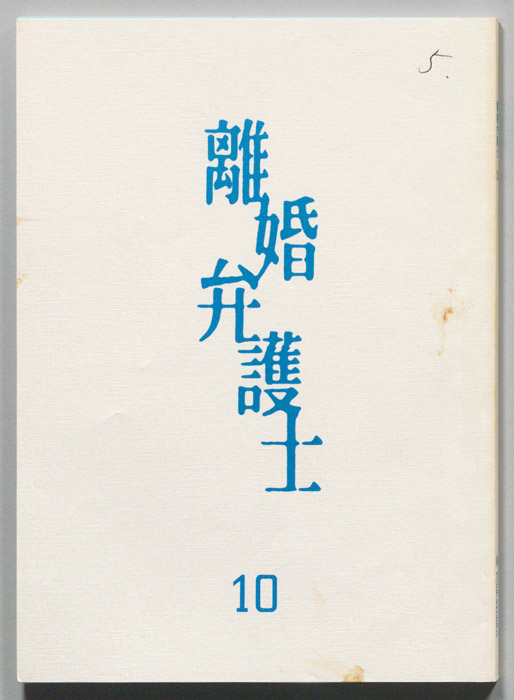 5.
離婚弁護士
10